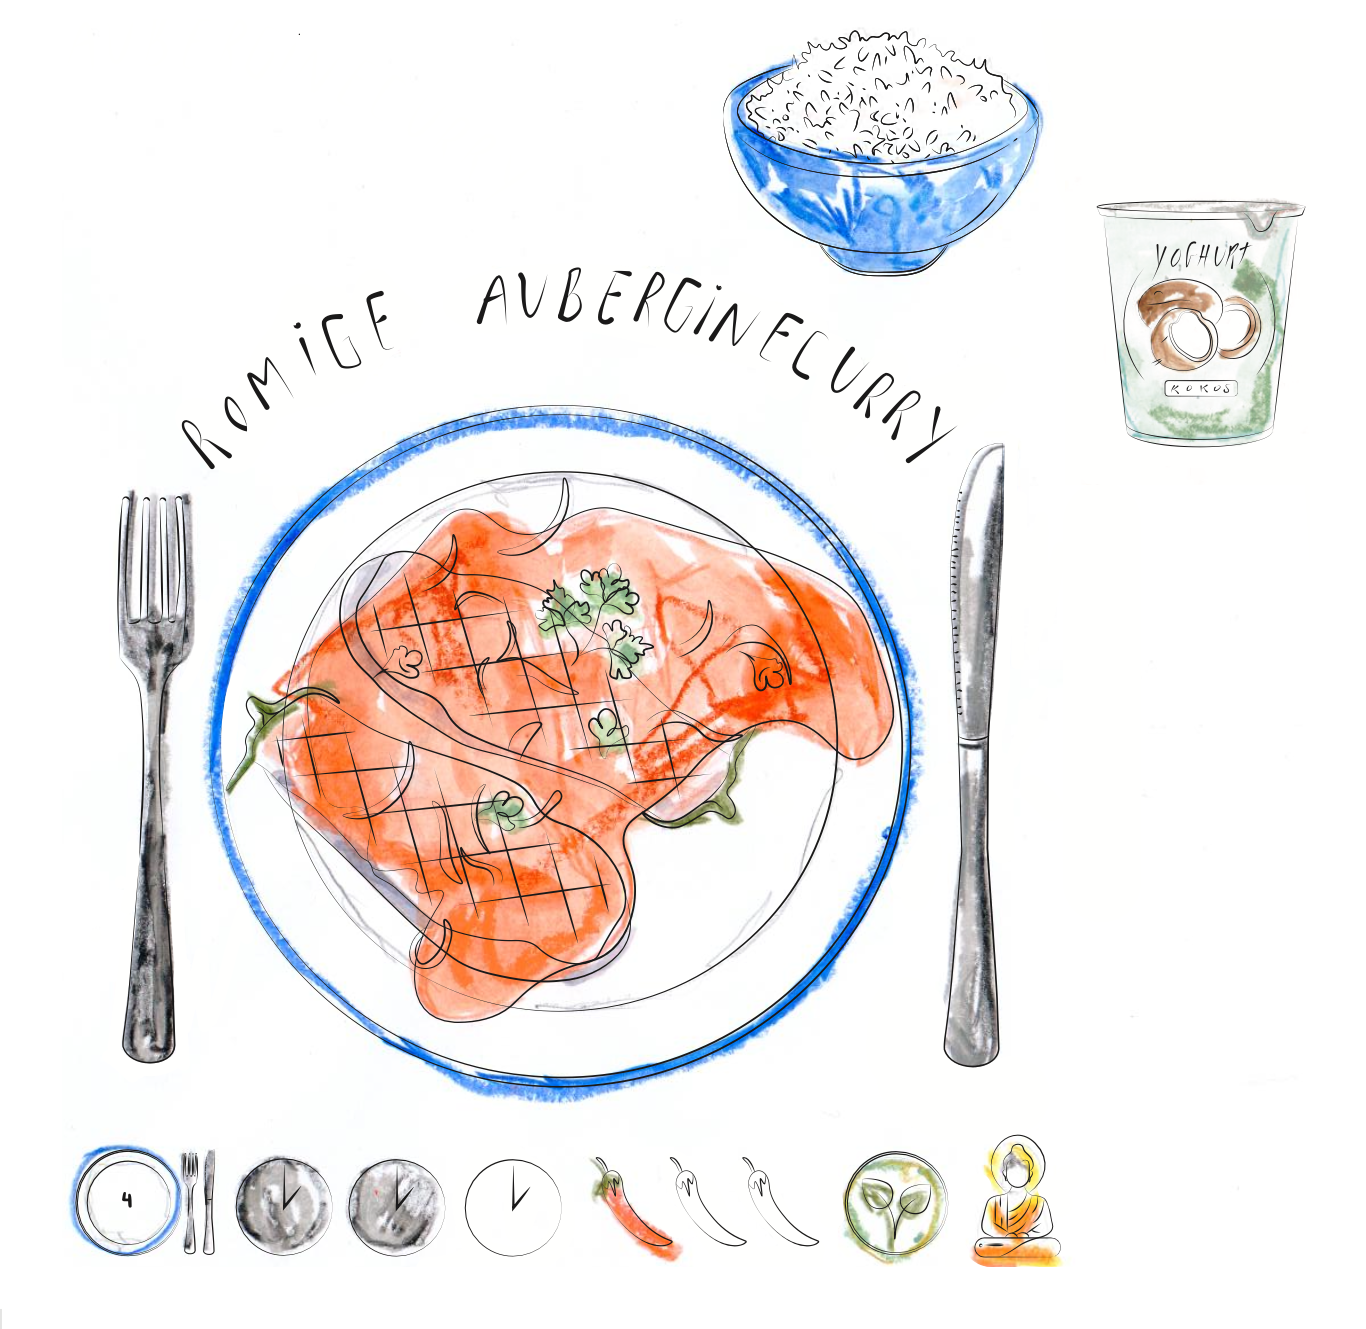 ROMIGE AUBERGINECURRY
YOGHURT
KOKOS
4